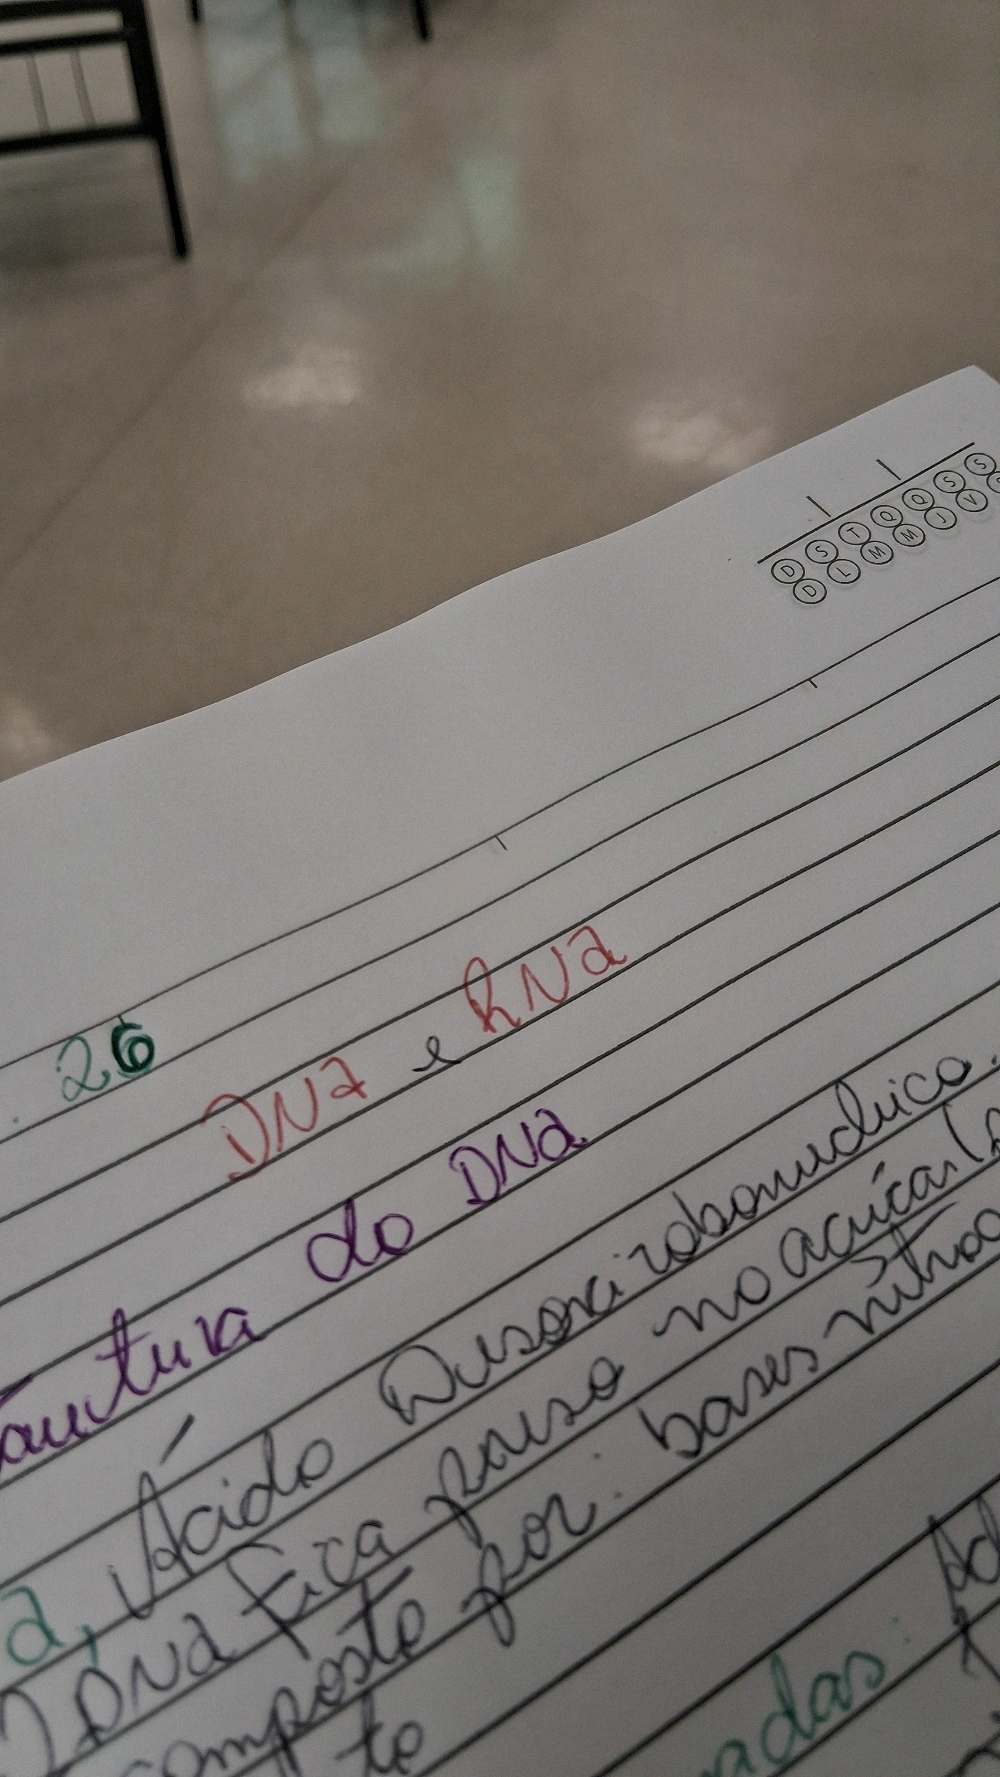 D S T Q Q S S
D L M M J V S
26
DNA e RNA
do DNA
a, Ácido Desoxirribonucleico.
DNA fica preso no açúcar
composto por: bases nitro
to
adas: Ad